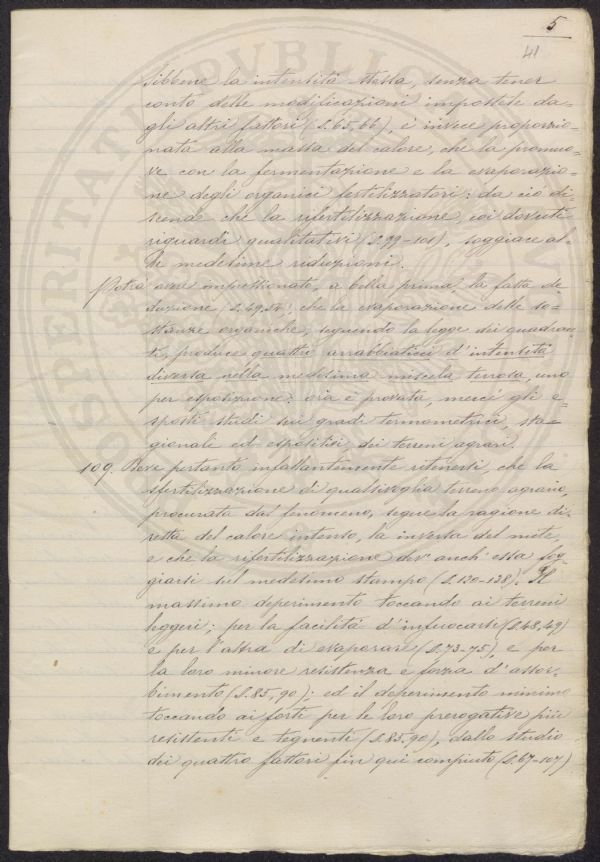 5
41
sibbene la intensità stessa, senza tener
conto delle modificazioni impostele da=
gli altri fattori (§.65,66), è invece proporzio=
nata alla massa del calore, che la promuo=
ve con la fermentazione e la evaporazio=
ne degli organici fertilizzatori: da ciò di=
scende che la rifertilizzazione, coi dovuti
riguardi qualitativi (§.99-101), soggiace al=
le medesime riduzioni.
Potrà aver impressionato, a bella prima, la fatta de
duzione (§.49,54), che la evaporazione delle so=
stanze organiche, seguendo la legge dei quadran=
ti, produce quattro arrabbiaticci d'intensità
diversa nella medesima miscela terrosa, uno
per esposizione: ora è provata, mercé gli e=
sposti studi sui gradi termometrici, sta=
gionali ed espositivi dei terreni agrari.
109 Deve pertanto infallantemente ritenersi, che la
sfertilizzazione di qualsivoglia terreno agrario,
procurata dal fenomeno, segue la ragione di=
retta del calore intenso, la inversa del mite,
e che la rifertilizzazione dev'anch'essa fog=
giarsi sul medesimo stampo (§.120-128). Il
massimo deperimento toccando ai terreni
leggeri; per la facilità d'infuocarsi (§.48,49)
e per l'altra di evaporare (§.73-75), e per
la loro minore resistenza e forza d'assor=
bimento (§.85,90); ed il deperimento minimo
toccando ai forti per le loro prerogative più
resistenti e tegnenti (§.85.90), dallo studio
dei quattro fattori fin qui compiuto (§.67-107)
PROSPERITATI PVBLICAE